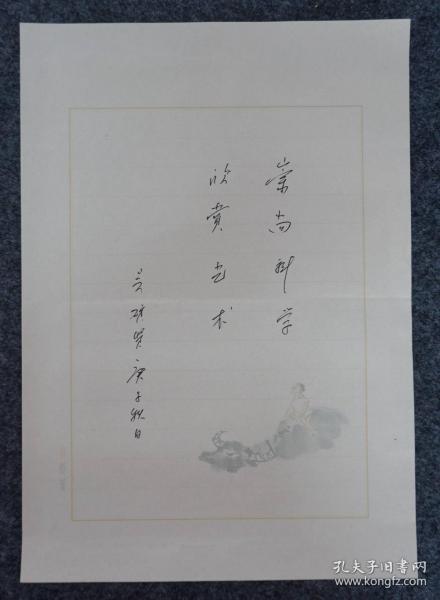 崇尚科学
欣赏艺术
吴硕贤 庚子秋日
孔夫子旧书网
www.kongfz.com